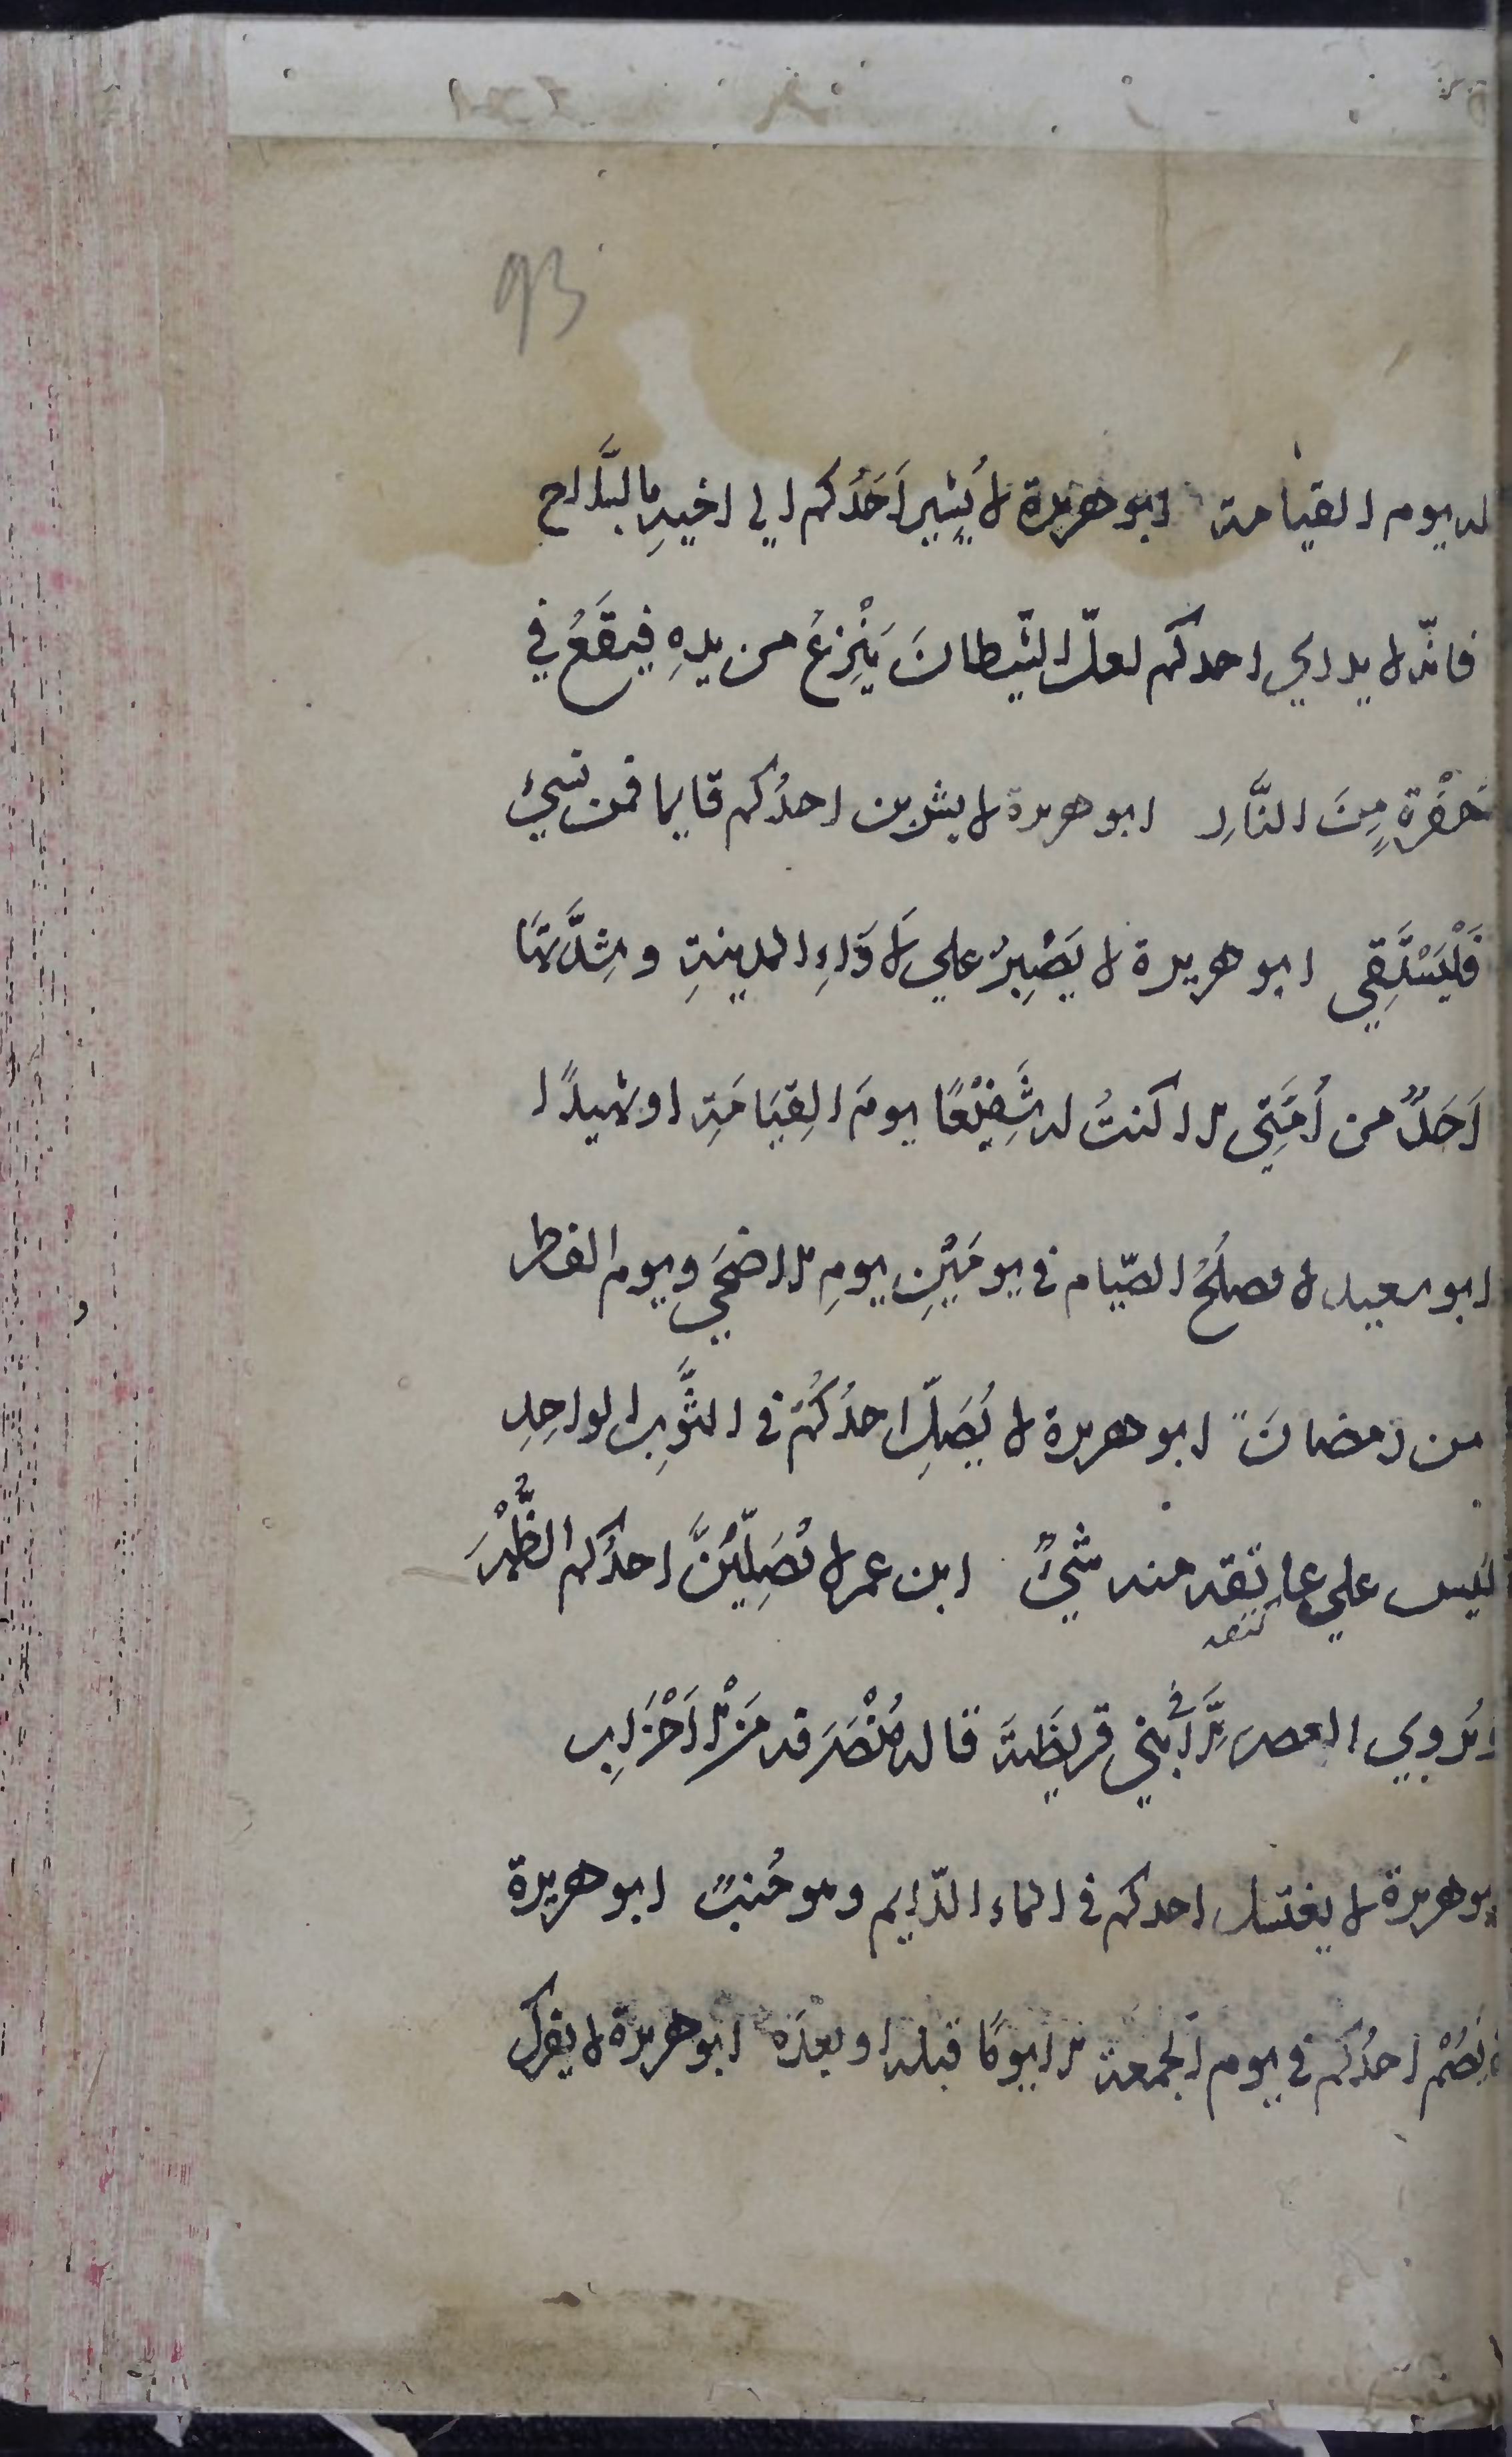 93
له يوم القيامة ابو هريرة لا يُشِير اَحَدُكم الي اخيهِ بالسَّلاح
فانّه لا يدري احدكم لعلّ الشّيطانَ يَنْزِعُ من يدِهِ فيقَعُ في
حُفْرَةٍ مِنَ النَّارِ ابو هريرة لا يشربن احدُكم قايما فمن نسيَ
فَلْيَسْتَقِي ابو هريرة لا يَصْبِرُ علي لَاوَاءِ المدينةِ وشِدَّتِهَا
اَحَدٌ من اُمَّتِي الا كنتُ له شَفِيْعًا يومَ القِيَامَةِ او شهيدًا
ابو سعيد لا يصلُحُ الصّيام في يومَيْنِ يومِ الاضحَي ويوم الفطر
من رمضانَ ابو هريرة لا يُصَلِّ احدُكُمْ في الثَّوبِ الواحِدِ
ليس علي عاتقه منه شيْءٌ ابن عمر لا يُصَلِّيَنَّ احدُكم الظُّهْرَ
كتفه
ويُروي العصرَ اِلَّا في بني قريظَةَ قاله مُنْصَرَفه مَن الاَحْزَابِ
ابو هريرة لا يغتسل احدكم في الماء الدّايم وهو جُنبٌ ابو هريرة
لا يَصُمْ احدُكم في يوم الجمعة الا يومًا قبله او بعدَه ابو هريرة لا يفرك